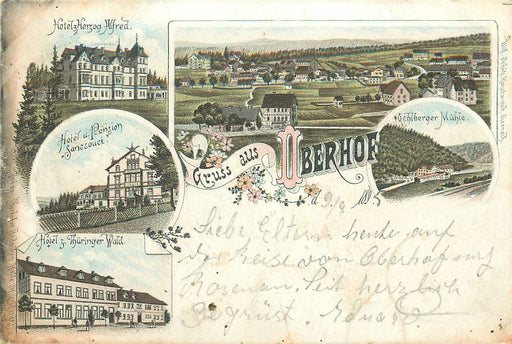 Hotel Herzog Alfred.
Hotel u. Pension
Sanssouci.
Gehlberger Mühle.
Gruss aus OBERHOF
Hotel z. Thüringer Wald
d. 9/9 1895
Liebe Eltern heute auf
der Reise von Oberhof
Rosenau. Seit herzlich
Gegrüst. Eduard